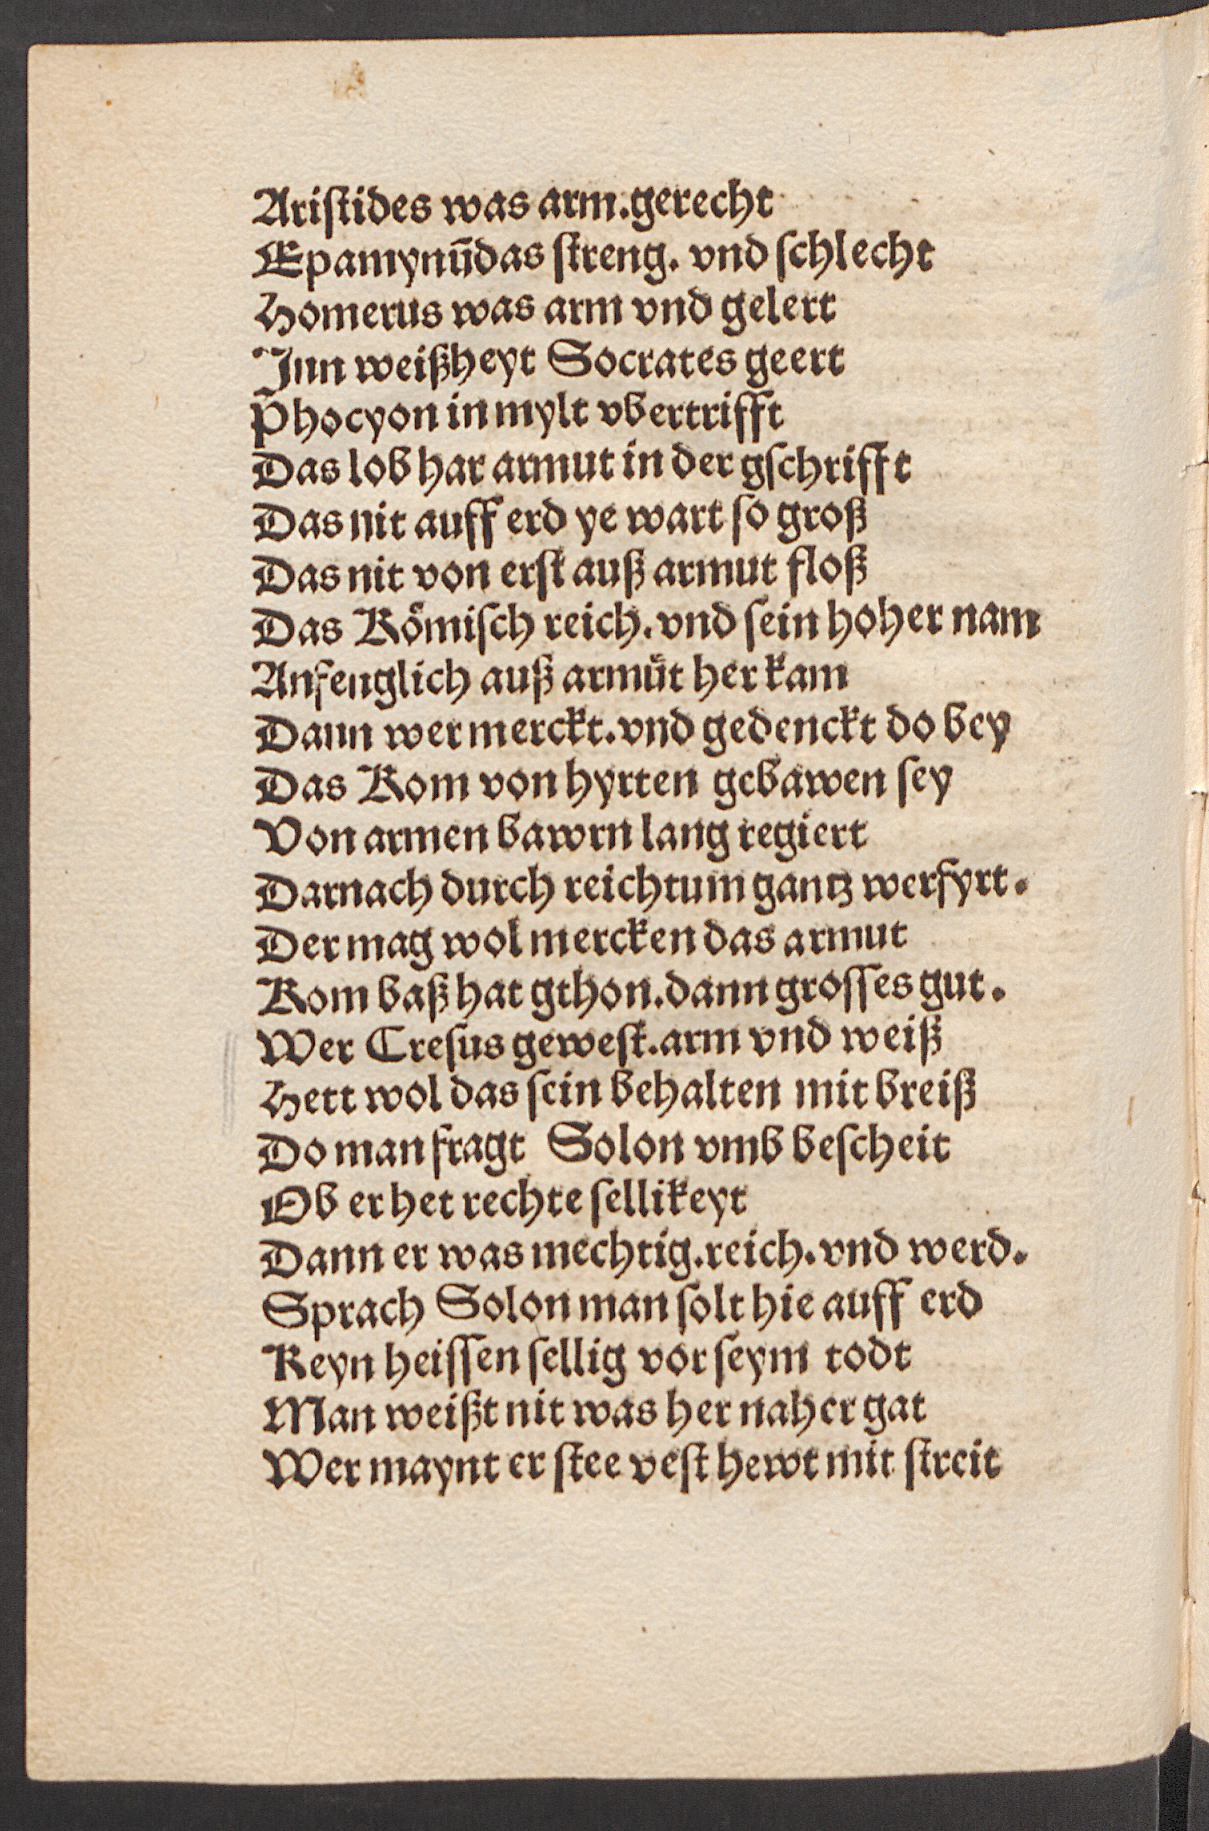 Ariſtides was arm.gerecht
Epamynūdas ſtreng. vnd ſchlecht
Homerus was arm vnd gelert
Jnn weißheyt Socrates geert
Phocyon in mylt vbertrifft
Das lob har armut in der gſchrifft
Das nit auff erd ye wart ſo groß
Das nit von erſt auß armut floß
Das Rőmiſch reich.vnd ſein hoher nam
Anfenglich auß armüt her kam
Dann wer merckt.vnd gedenckt do bey
Das Rom von hyrten gebawen ſey
Von armen bawrn lang regiert
Darnach durch reichtum gantz werfyrt.
Der mag wol mercken das armut
Rom baß hat gthon.dann groſſes gut.
Wer Creſus geweſt.arm vnd weiß
Hett wol das ſein behalten mit breiß
Do man fragt Solon vmb beſcheit
Ob er het rechte ſellikeyt
Dann er was mechtig.reich.vnd werd.
Sprach Solon man ſolt hie auff erd
Keyn heiſſen ſellig vor ſeym todt
Man weißt nit was her naher gat
Wer maynt er ſtee veſt hewt mit ſtreit